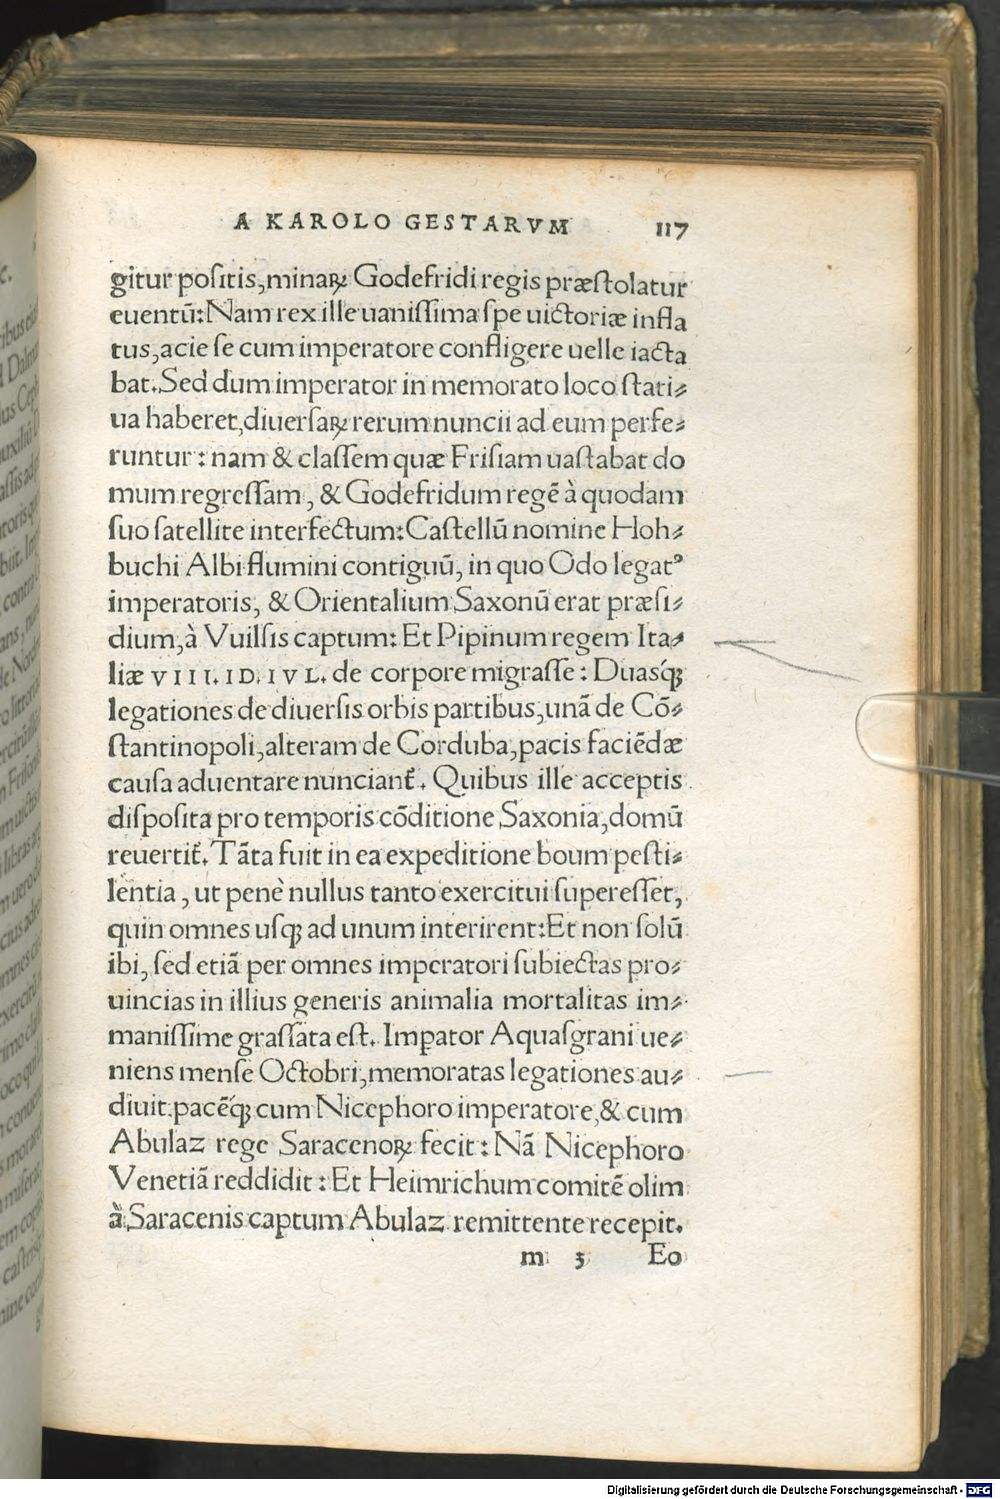 A KAROLO GESTARVM 117
gitur poſitis,minaꝝ Godefridi regis præſtolatur
euentū:Nam rex ille uaniſſima ſpe uictoriæ infla
tus,acie ſe cum imperatore confligere uelle iacta
bat.Sed dum imperator in memorato loco ſtati⸗
ua haberet,diuerſaꝝ rerum nuncii ad eum perfe⸗
runtur: nam & claſſem quæ Friſiam uaſtabat do
mum regreſſam, & Godefridum regē à quodam
ſuo ſatellite interfectum:Caſtellū nomine Hoh⸗
buchi Albi flumini contiguū, in quo Odo legatꝰ
imperatoris, & Orientalium Saxonū erat præſi⸗
dium,à Vuilſis captum: Et Pipinum regem Ita⸗
liæ VIII. ID. IVL. de corpore migraſſe: Duasq́ꝫ
legationes de diuerſis orbis partibus,unā de Cō⸗
ſtantinopoli,alteram de Corduba,pacis faciēdæ
cauſa aduentare nunciant᷑. Quibus ille acceptis
diſpoſita pro temporis cōditione Saxonia,domū
reuertit᷑. Tāta fuit in ea expeditione boum peſti⸗
lentia, ut penè nullus tanto exercitui ſupereſſet,
quin omnes uſqꝫ ad unum interirent:Et non ſolū
ibi, ſed etiā per omnes imperatori ſubiectas pro⸗
uincias in illius generis animalia mortalitas im⸗
maniſſime graſſata eſt. Imꝑator Aquaſgrani ue⸗
niens menſe Octobri,memoratas legationes au⸗
diuit.pacēq́ꝫ cum Nicephoro imperatore,& cum
Abulaz rege Saracenoꝝ fecit: Nā Nicephoro
Venetiā reddidit: Et Heimrichum comitē olim
à Saracenis captum Abulaz remittente recepit.
m 3 Eo
Digitalisierung gefördert durch die Deutsche Forschungsgemeinschaft - DFG